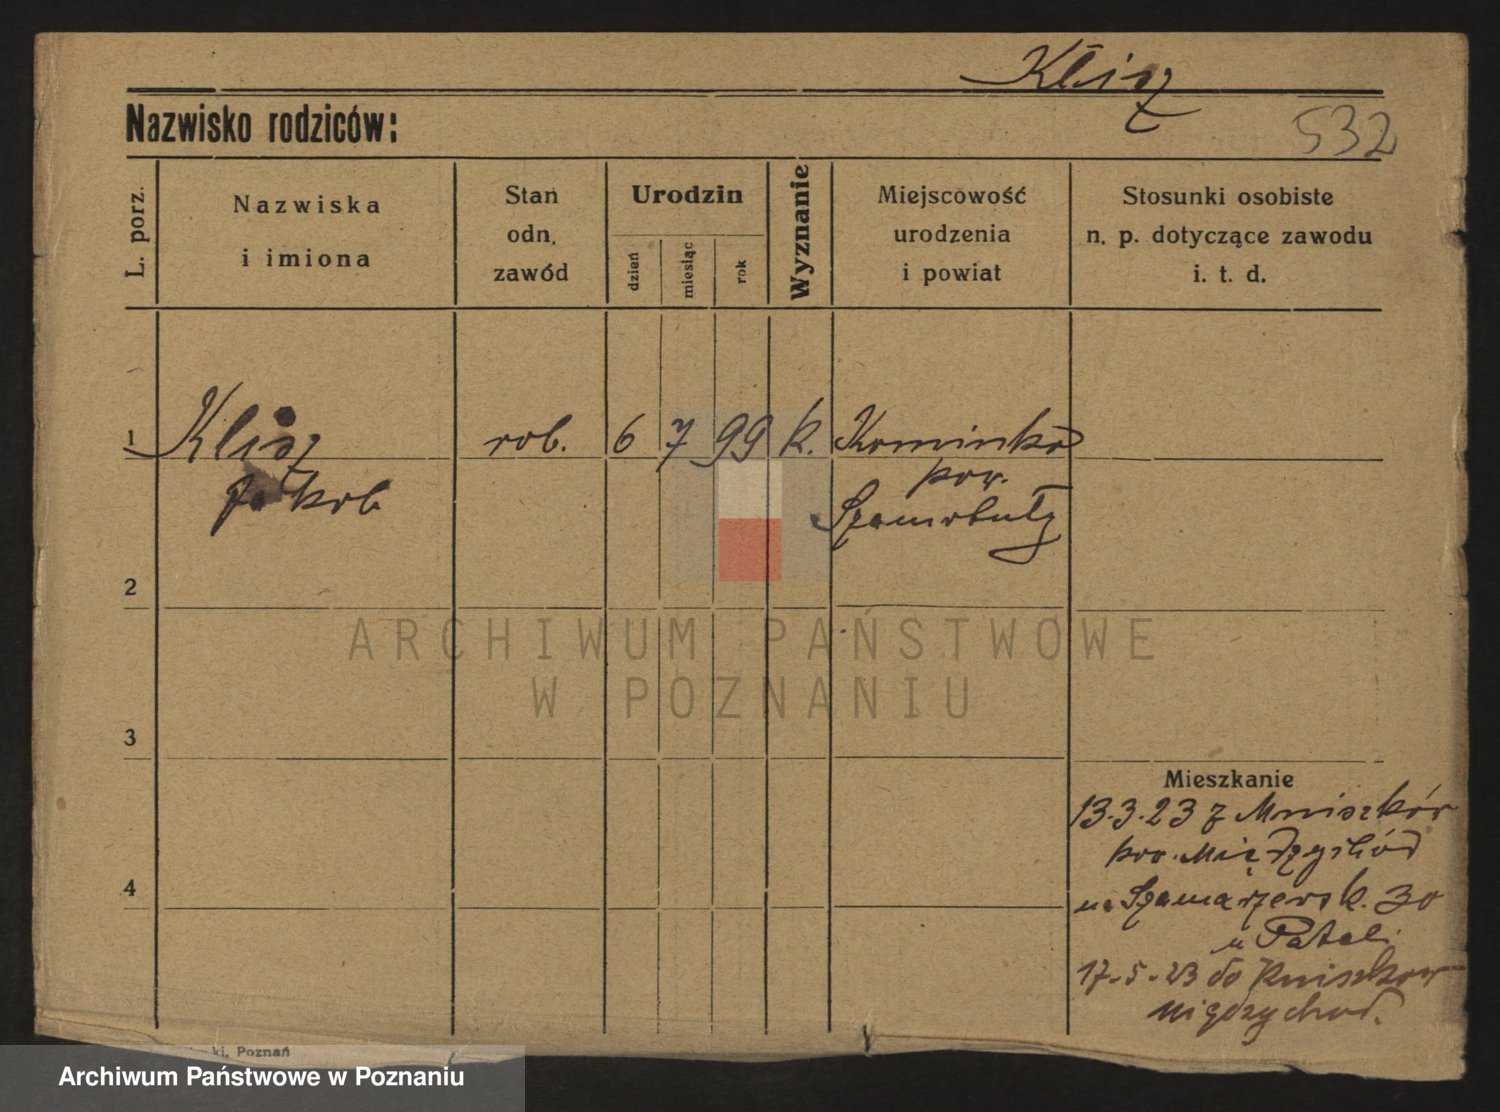 Klisz
Nazwisko rodziców:
532
L. porz.
Nazwiska
i imiona
Stan
odn.
zawód
Urodzin
dzień
miesiąc
rok
Wyznanie
Miejscowość
urodzenia
i powiat
Stosunki osobiste
n. p. dotyczące zawodu
i. t. d.
1 Klisz rob. 6 7 99 k. Kominko
Jakob pow.
Szamotuły
2
3
4
Mieszkanie
13.3.23 z Mniszków
pow. Międzychód
na Szamarzewsk. 30
u
17.5.23 do Mniszkow
Międzychod.
ki, Poznań
ARCHIWUM PAŃSTWOWE
W POZNANIU
Archiwum Państwowe w Poznaniu